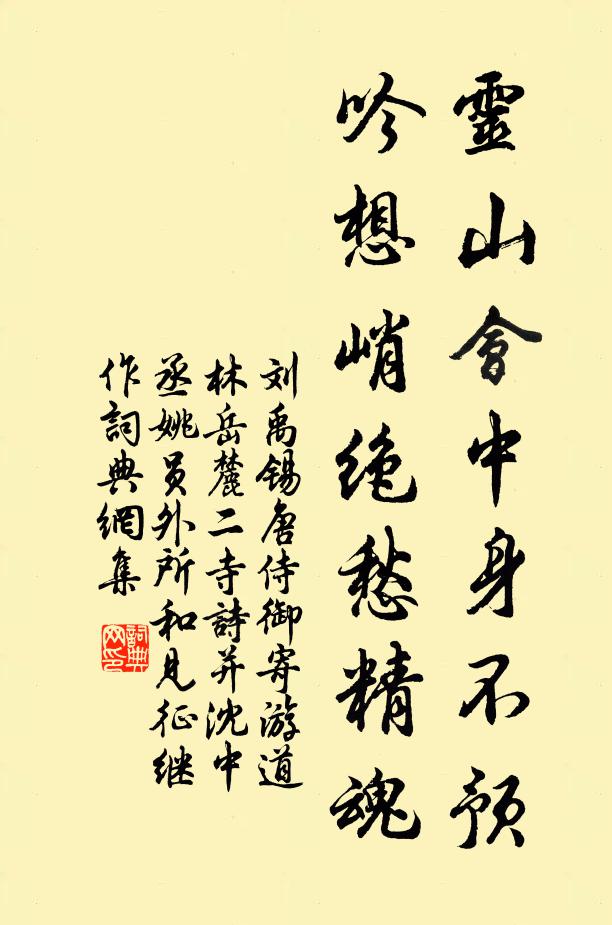 靈山會中身不預
吟想峭绝愁精魂
刘禹锡唐侍御寄游道
林岳麓二寺詩并沈中
丞姚员外所和见征继
作詞典網集
詞典網印